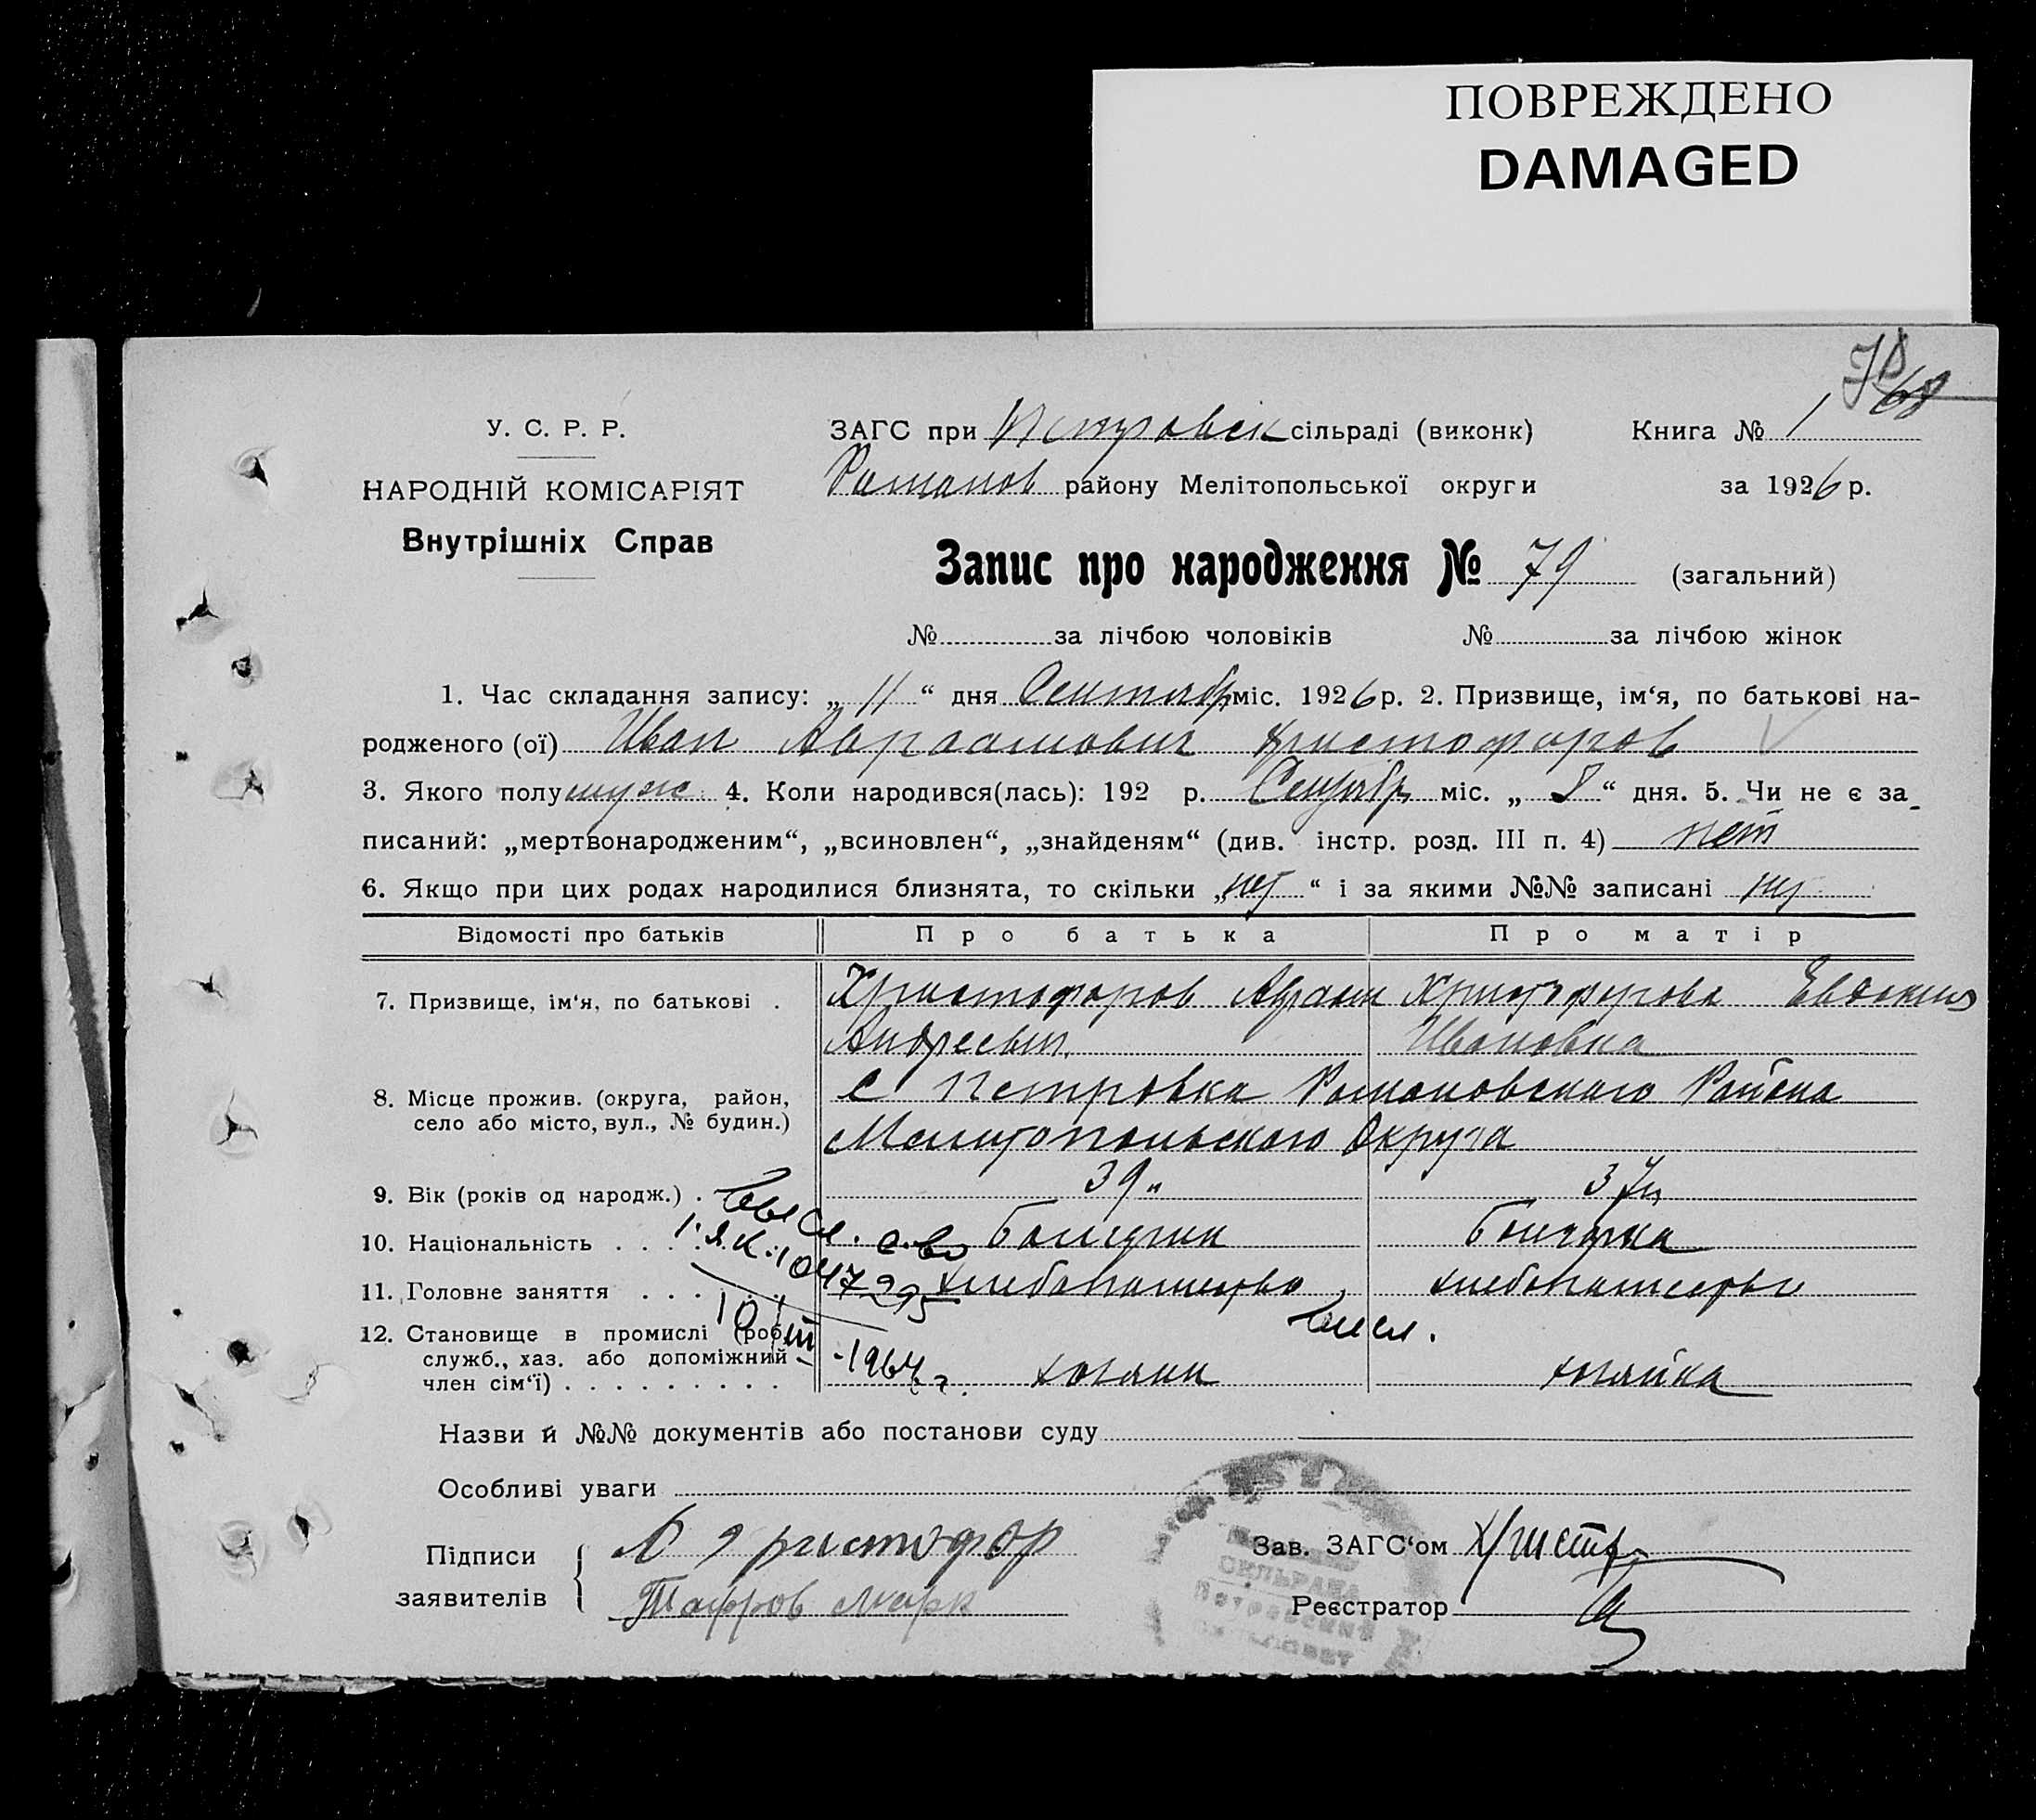 ПОВРЕЖДЕНО
DAMAGED
У. С. Р. Р.
НАРОДНІЙ КОМІСАРІЯТ
Внутрішніх Справ
78
68
ЗАГС при Петровск сільраді (виконк) Книга № 1
Роман��в району Мелітопольської округи за 1926 р.
Запис про народження № 79 (загальний)
№ за лічбою чоловіків № за лічбою жінок
1. Час складання запису: „11“ дня Сентябр міс. 1926 р. 2. Призвище, ім‘я, по батькові на-
родженого (ої) Иван Авраамович Христофоров
3. Якого полу муж 4. Коли народився(лась): 192 р. Сентябр міс. „8“ дня. 5. Чи не є за-
писаний: „мертвонародженим“, „всиновлен“, „знайденям“ (див. інстр. розд. III п. 4) нет
6. Якщо при цих родах народилися близнята, то скільки „нет“ і за якими №№ записані нет
Відомості про батьків Про батька Про матір
7. Призвище, ім‘я, по батькові . Христофоров Авраам Христофорова Евдокия
Андреевич Ивановна
8. Місце прожив. (округа, район, с Петровка Романовскаго Района
село або місто, вул., № будин.) Мелитопольскаго Округа
9. Вік (років од народж.) . 39 37
10. Національність . . . . Болгарин Болгарка
11. Головне заняття . . . . хлебопашество хлебопашество
12. Становище в промислі (роб.
служб., хаз. або допоміжний
член сім‘ї) . . . . . . . . . хозяин хозяйка
Высл. с-во
І. Я. К. 1047295
10/III - 1964 г.
Высл.
Назви й №№ документів або постанови суду
Особливі уваги
Підписи
заявителів
А Христофор
Тафров Марк
Зав. ЗАГС‘ом
Реєстратор
СІЛЬРАДА
Петровский